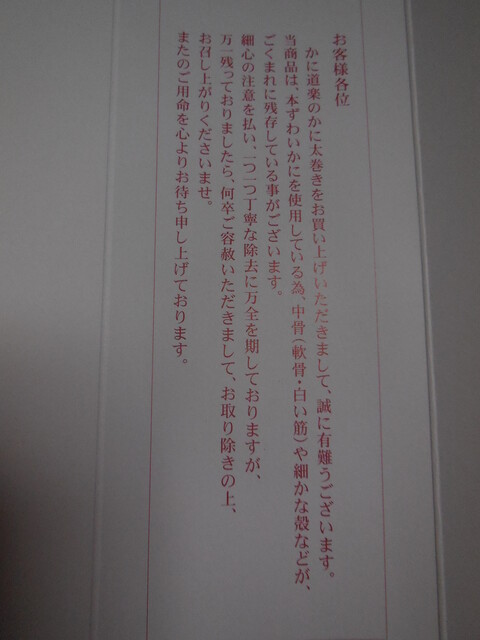 お客様各位
かに道楽のかに太巻きをお買い上げいただきまして、誠に有難うございます。
当商品は、本ずわいかにを使用している為、中骨(軟骨・白い筋)や細かな殻などが、
ごくまれに残存している事がございます。
細心の注意を払い、一つ一つ丁寧な除去に万全を期しておりますが、
万一残っておりましたら、何卒ご容赦いただきまして、お取り除きの上、
お召し上がりくださいませ。
またのご用命を心よりお待ち申し上げております。